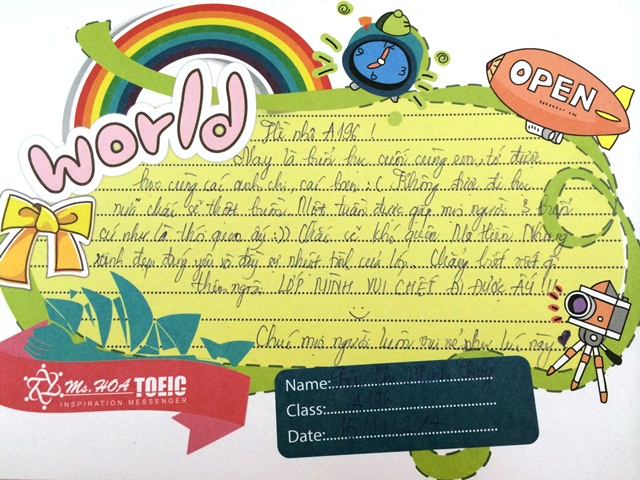 world
OPEN
Hi nhà A196 !
Nay là buổi học cuối cùng em, tớ được
học cùng các anh chị, các bạn :( Không được đi học
nữa chắc sẽ thật buồn. Một tuần được gặp mọi người 3 buổi
cứ như là thói quen ấy :)) Chắc có khó quên
xinh đẹp đáng yêu và đầy sự nhiệt tình của lớp. Chẳng biết viết gì
thêm ngoài LỚP MÌNH VUI CHẾT ĐI ĐƯỢC ẤY !!!
Chúc mọi người luôn vui vẻ như lúc này
Ms. HOA TOEIC
INSPIRATION MESSENGER
Name:
Class: A196
Date: